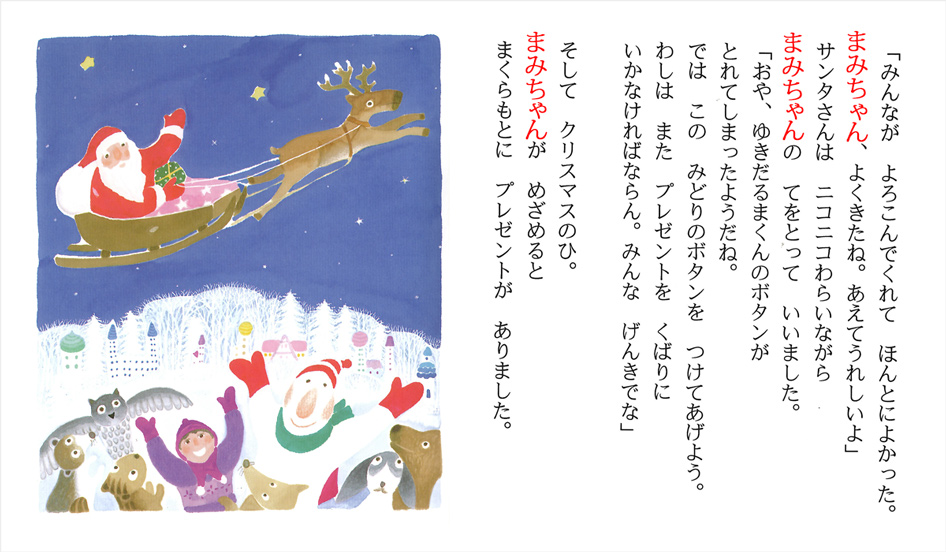 「みんなが　よろこんでくれて　ほんとによかった。
まみちゃん、よくきたね。あえてうれしいよ」
サンタさんは　ニコニコわらいながら
まみちゃんの　てをとって　いいました。
「おや、ゆきだるまくんのボタンが
とれてしまったようだね。
では　この　みどりのボタンを　つけてあげよう。
わしは　また　プレゼントを　くばりに
いかなければならん。みんな　げんきでな」
そして　クリスマスのひ。
まみちゃんが　めざめると
まくらもとに　プレゼントが　ありました。